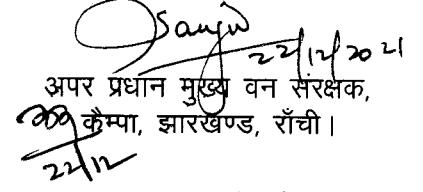 Sanjiv
22/12/2021
अपर प्रधान मुख्य वन संरक्षक,
कैम्पा, झारखण्ड, राँची।
22/12